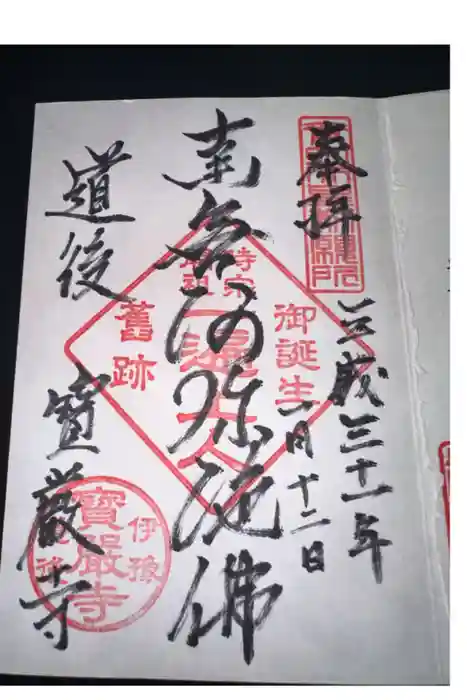 奉拝
平成三十一年
月十二日
御誕生
南無阿弥陀佛
時宗
一遍上人
舊跡
道後 寶厳寺
伊豫
寶嚴寺